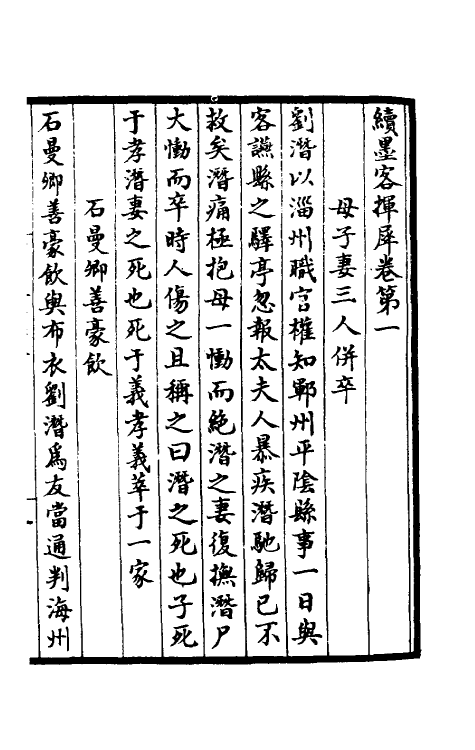 續墨客揮犀卷第一
母子妻三人併卒
劉潛以淄州職官權知鄆州平陰縣事一日與
客讌縣之驛亭忽報太夫人暴疾潛馳歸已不
救矣潛痛極抱母一慟而絶潛之妻復撫潛尸
大慟而卒時人傷之且稱之曰潛之死也子死
于孝潛妻之死也死于義孝義萃于一家
石曼卿善豪飲
石曼卿善豪飲與布衣劉潛爲友當通判海州